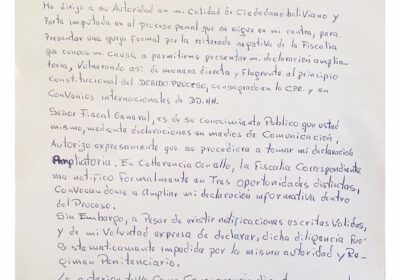 Me dirijo a su Autoridad en mi Calidad de Ciudadano boliviano y
Parte imputada en el proceso penal que se sigue en mi contra, para
Presentar una queja formal por la reiterada negativa de la Fiscalía
que conoce mi causa a permitirme presentar mi declaración amplia-
toria, Vulnerando así de manera directa y Flagrante al principio
constitucional del DEBIDO PROCESO, consagrado en la CPE. y en
Convenios internacionales de DD-HH.
Señor Fiscal General, es de su conocimiento Publico que usted
mismo, mediante declaraciones en medios de Comunicación,
Autorizo expresamente que se procediera a tomar mi declaración
Ampliatoria. En Coherencia con ello, la Fiscalía Correspondiente
me notificó Formalmente en Tres oportunidades distintas,
Convocandome a Ampliar mi declaración informativa dentro
del Proceso.
Sin Embargo, a Pesar de existir notificaciones escritas Validas,
y de mi Voluntad expresa de declarar, dicha diligencia Fue
Sistematicamente impedida por la misma autoridad y Re-
gimen Penitenciario.